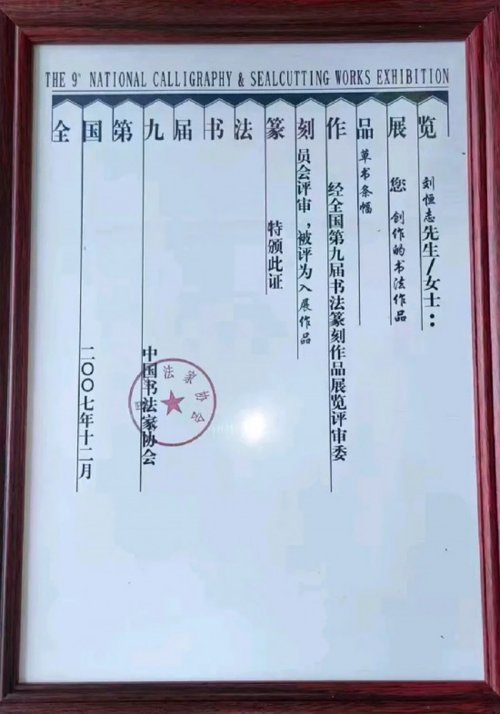 THE 9ᵗʰ NATIONAL CALLIGRAPHY & SEALCUTTING WORKS EXHIBITION
全国第九届书法篆刻作品展览
刘恒志先生/女士：
您创作的书法作品
草书条幅
经全国第九届书法篆刻作品展览评审委
员会评审，被评为入展作品
特颁此证
中国书法家协会
二〇〇七年十二月
法家协会